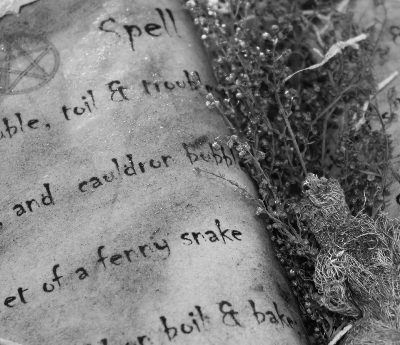 Spell
uble, toil & trouble,
and cauldron bubble
et of a fenny snake
boil & bake